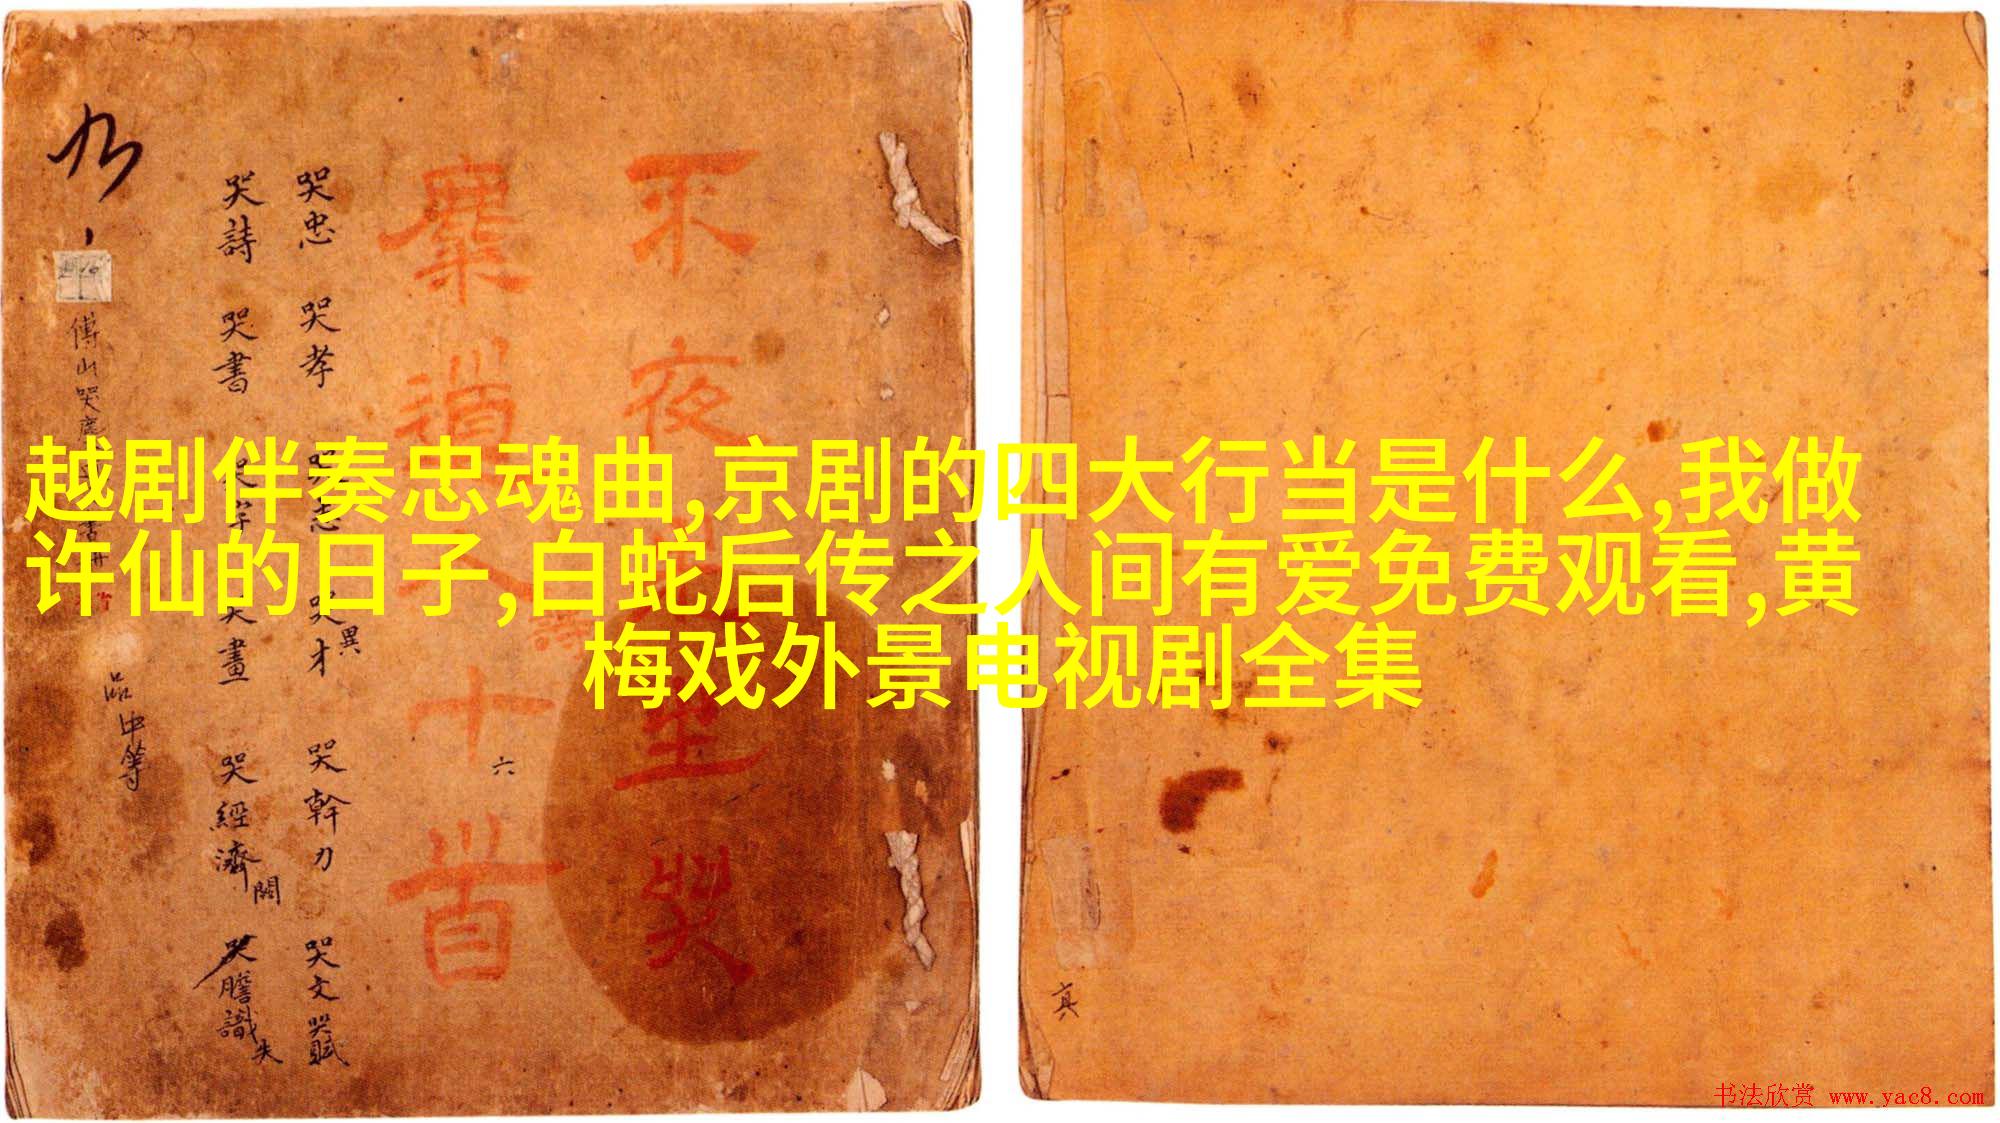 越剧伴奏忠魂曲,京剧的四大行当是什么,我做
许仙的日子,白蛇后传之人间有爱免费观看,黄
梅戏外景电视剧全集
夜坐哭
道人十首
六
哭忠 哭孝 哭志 哭才異 哭幹力 哭文哭賦
哭詩 哭書 哭字 哭畫 哭經濟闊 哭膽識失
傅山哭
品中等
真
书法欣赏 www.yac8.com